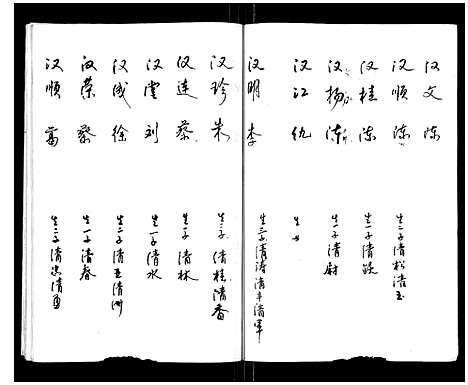 汉文 陈
汉顺 陈 生二子清松清玉
汉桂 陈 生一子清
汉杨 陈 生一子清尉
汉江 仇 生女
汉明 李 生三子清涛清丰清军
汉珍 朱 生二子清桂清香
汉连 蔡 生子清林
汉堂 刘 生一子清水
汉成 徐 生二子清玉清州
汉荣 蔡 生一子清春
汉顺 葛 生二子清忠清勇